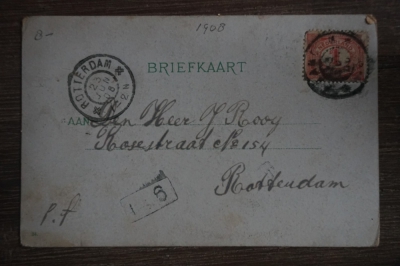 B-
1908
BRIEFKAART
ROTTERDAM
AAN
Den Heer J Rooy
Rosestraat No 154
Rotterdam
6
p.f